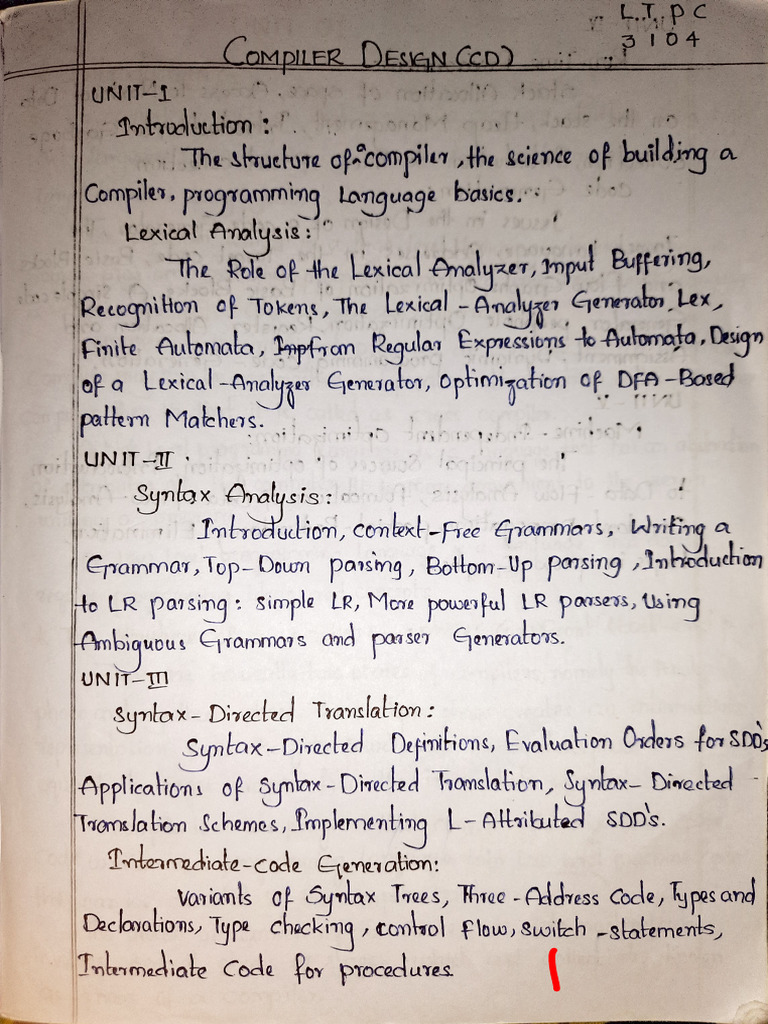 L.T. P C
3 1 0 4
COMPILER DESIGN (CD)
UNIT-I
Introduction :
The structure of a compiler, the science of building a
Compiler, programming Language basics.
Lexical Analysis :
The Role of the Lexical Analyzer, Input Buffering,
Recognition of Tokens, The Lexical-Analyzer Generator Lex,
Finite Automata, Inpfrom Regular Expressions to Automata, Design
of a Lexical-Analyzer Generator, Optimization of DFA-Based
pattern Matchers.
UNIT-II
Syntax Analysis :
Introduction, context-Free Grammars, Writing a
Grammar, Top-Down parsing, Bottom-Up parsing, Introduction
to LR parsing : simple LR, More powerful LR parsers, Using
Ambiguous Grammars and parser Generators.
UNIT-III
Syntax-Directed Translation :
Syntax-Directed Definitions, Evaluation Orders for SDD's
Applications of Syntax-Directed Translation, Syntax-Directed
Translation Schemes, Implementing L-Attributed SDD's.
Intermediate-code Generation:
Variants of Syntax Trees, Three-Address Code, Types and
Declarations, Type checking, control flow, switch-statements,
Intermediate Code for procedures.